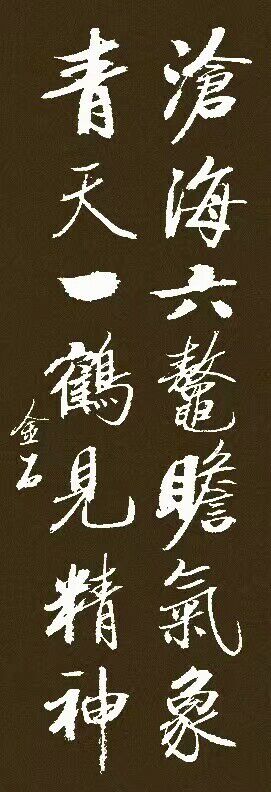 滄海六鼇瞻氣象
青天一鶴見精神
金石